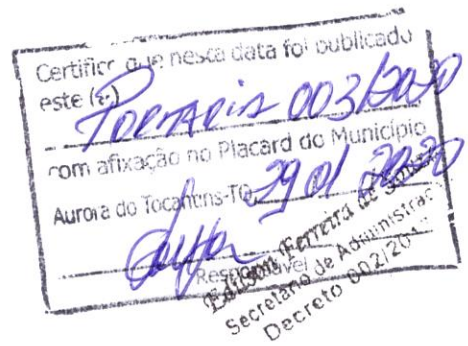 Certifico que nesta data foi publicado
este (a)
PORTARIA 003/2020
com afixação no Placard do Município
Aurora do Tocantins-TO, 29 01 2020
Responsável
Edilson Ferreira de Sousa
Secretário de Administraç
Decreto 002/201